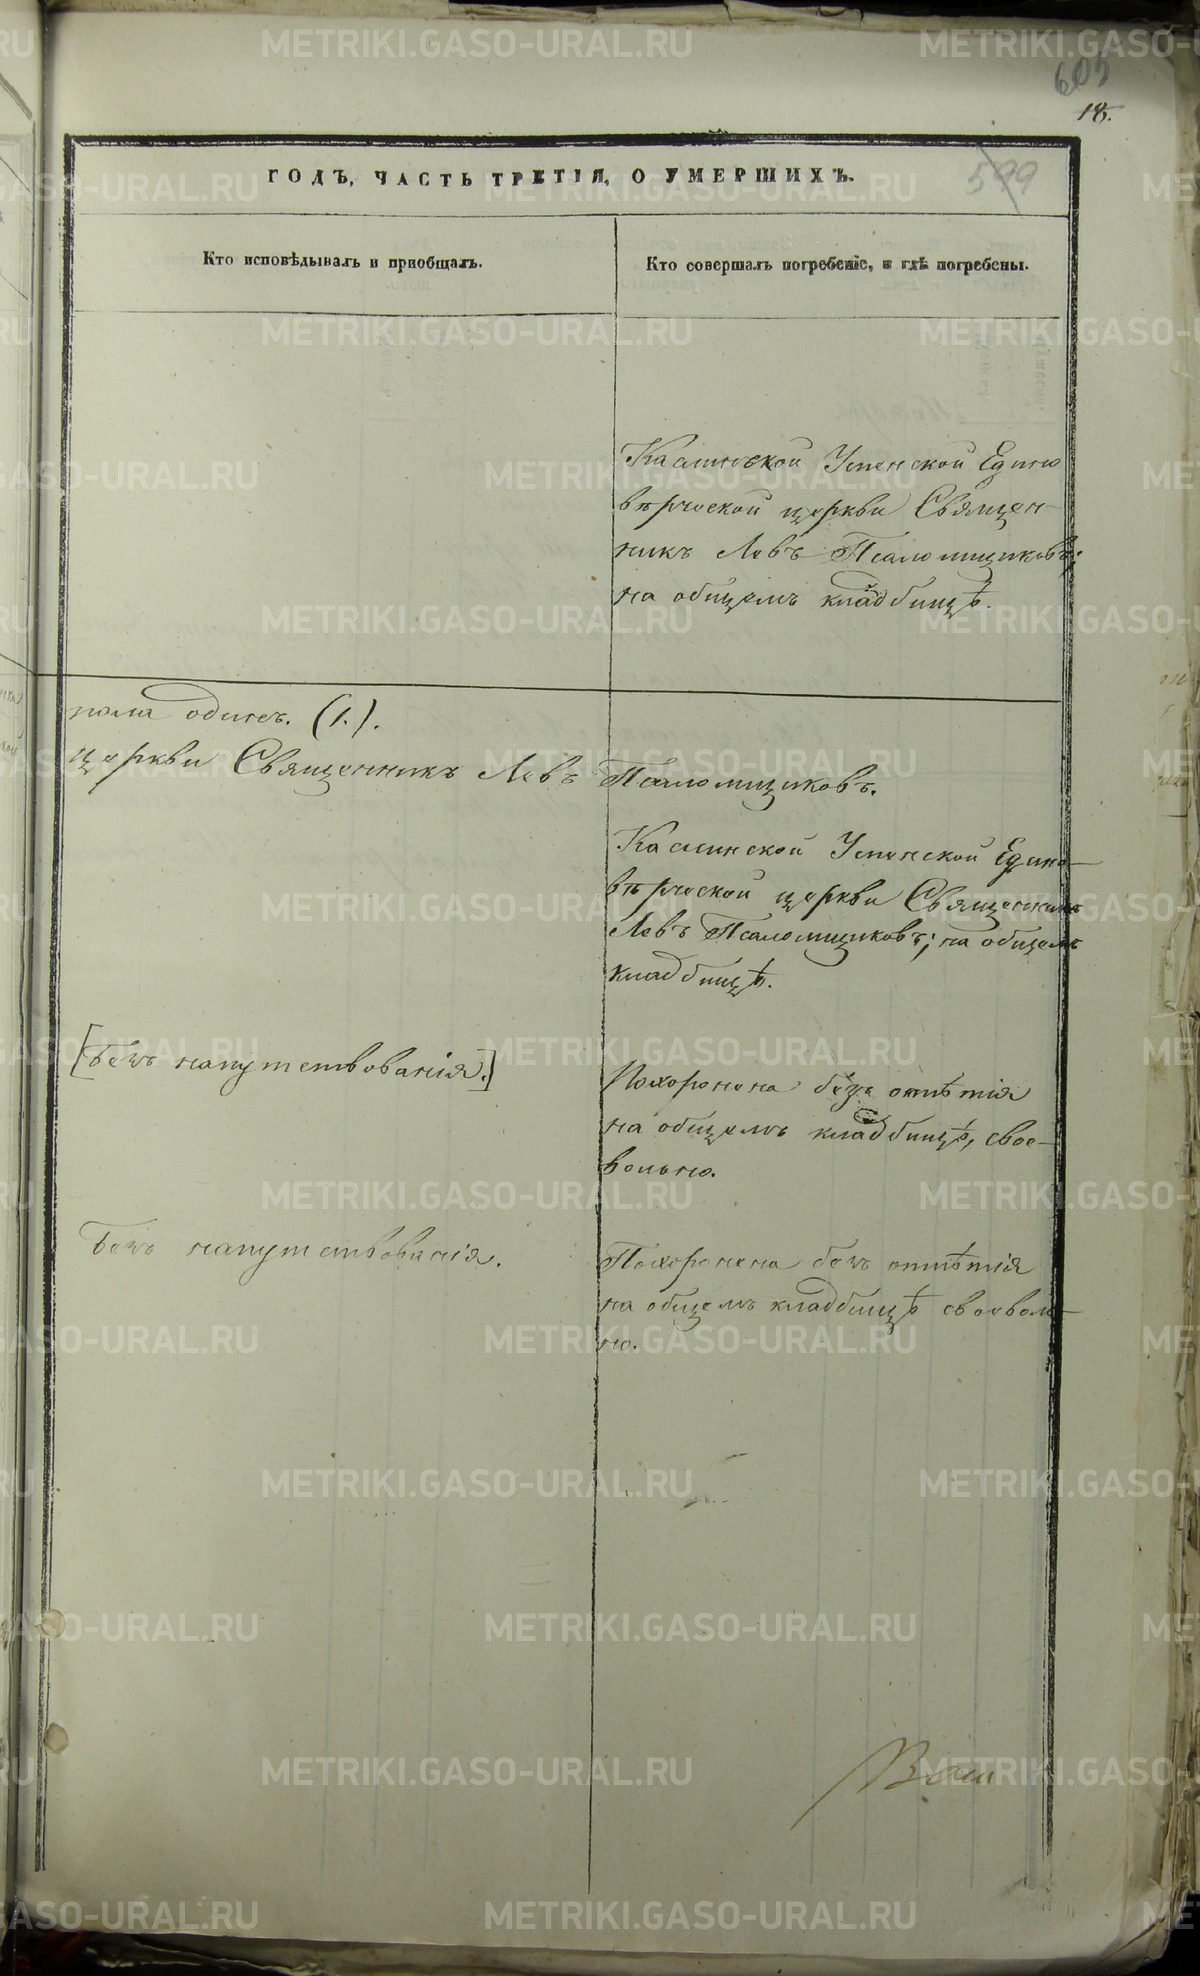 605
18.
599
ГОДЪ, ЧАСТЬ ТРЕТІЯ, О УМЕРШИХЪ.
Кто исповѣдывалъ и пріобщалъ.
Кто совершалъ погребеніе, и гдѣ погребены.
Каслинской Успенской Едино
вѣрческой церкви Священ-
никъ Левъ Псаломщиковъ;
на общемъ кладбищѣ.
пола одинъ. (1.).
церкви Священникъ Левъ Псаломщиковъ.
Каслинской Успенской Едино-
вѣрческой церкви Священникъ
Левъ Псаломщиковъ; на общемъ
кладбищѣ.
[Безъ напутствованія.]
Похоронена безъ отпѣтія
на общемъ кладбищѣ, свое-
вольно.
Безъ напутствованія.
Похоронена безъ отпѣтія
на общемъ кладбищѣ своеволь-
но.
METRIKI.GASO-URAL.RU